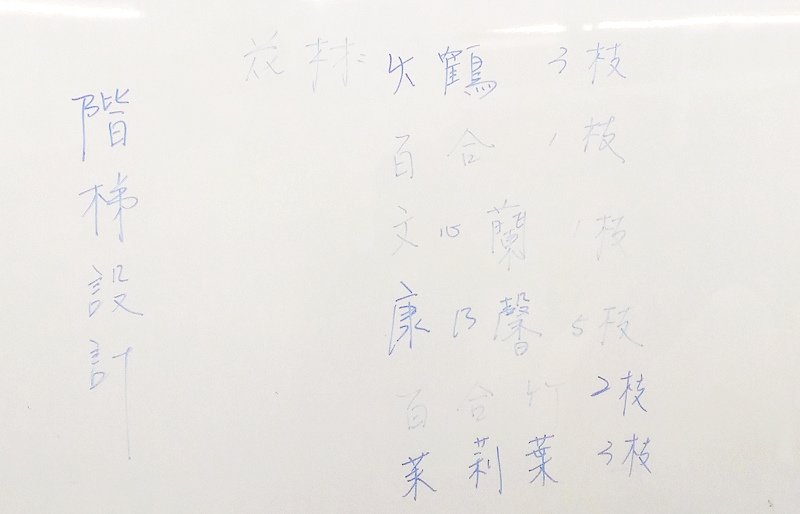 階梯設計
花材: 火鶴 3枝
百合 1枝
文心蘭 1枝
康乃馨 5枝
百合竹 2枝
茉莉葉 3枝